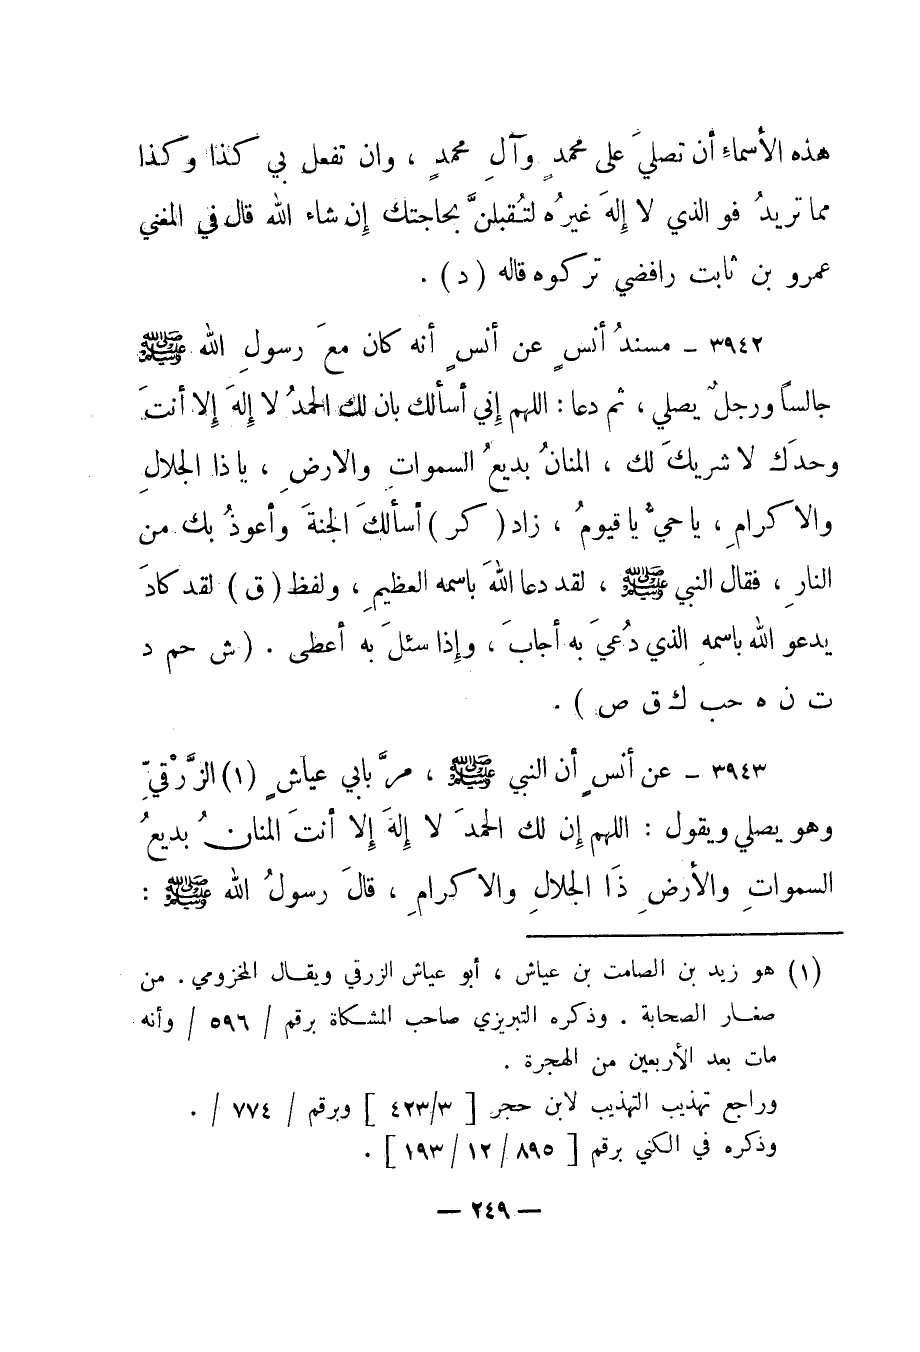 هذه الأسماءِ أن تصليَ على محمدٍ وآلِ محمدٍ ، وان تفعل بي كذا وكذا
مما تريدُ فو الذي لا إلهَ غيرُه لتُقبلنَّ بحاجتك إن شاء الله قال في المغني
عمرو بن ثابت رافضي تركوه قاله ( د ) .
٣٩٤٢ ـ مسندُ أنسٍ عن أنسٍ أنه كان معَ رسولِ الله ﷺ
جالساً ورجلٌ يصلي ، ثم دعا : اللهم إني أسألك بان لك الحمدُ لا إلهَ إلا أنتَ
وحدَك لا شريكَ لك ، المنانُ بديعُ السمواتِ والارضِ ، يا ذا الجلالِ
والاكرامِ ، يا حيُّ يا قيومُ ، زاد ( كر ) أسألكَ الجنةَ وأعوذُ بك من
النارِ ، فقال النبي ﷺ ، لقد دعا اللهَ باسمه العظيمِ ، ولفظ ( ق ) لقد كادَ
يدعو الله باسمهِ الذي دُعيَ به أجابَ ، وإذا سئلَ به أعطى . ( ش حم د
ت ن ه حب ك ق ص ) .
٣٩٤٣ ـ عن أنسٍ أن النبي ﷺ ، مرَّ بابي عياشٍ (١) الزُّرْقيِّ
وهو يصلي ويقول : اللهم إن لك الحمدَ لا إلهَ إلا أنتَ المنانُ بديعُ
السمواتِ والأرضِ ذَا الجلالِ والاكرامِ ، قالَ رسولُ الله ﷺ :
(١) هو زيد بن الصامت بن عياش ، أبو عياش الزرقي ويقال المخزومي . من
صغار الصحابة . وذكره التبريزي صاحب المشكاة برقم / ٥٩٦ / وأنه
مات بعد الأربعين من الهجرة .
وراجع تهذيب التهذيب لابن حجر [ ٤٢٣/٣ ] وبرقم / ٧٧٤ / .
وذكره في الكني برقم [ ٨٩٥ / ١٢ / ١٩٣ ] .
— ٢٤٩ —